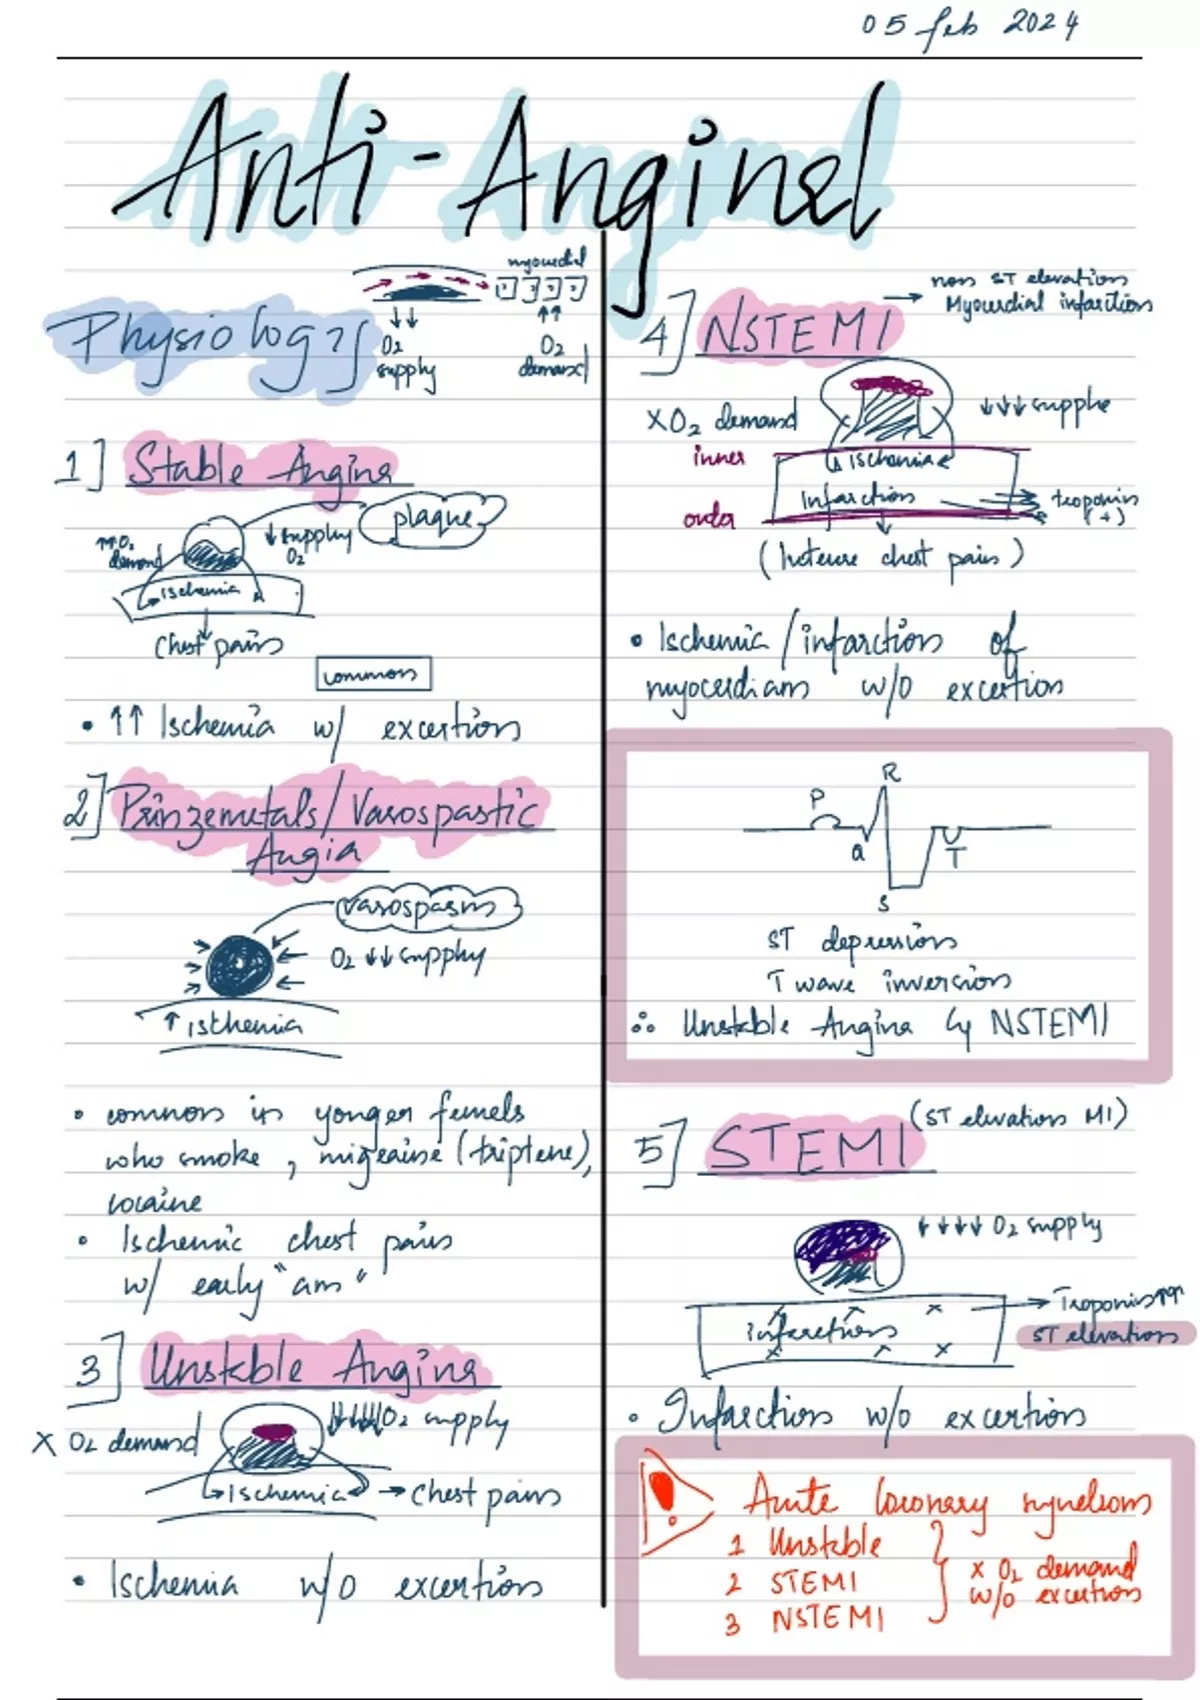 05 feb 2024
Anti-Anginal
Physiology
myocardial
O2
supply
O2
demand
1] Stable Angina
↑↑O2
demand
↓supply
O2
plaque
Ischemia
Chest pain
common
• ↑↑ Ischemia w/ excertion
2] Prinzemetals/Vasospastic
Angia
vasospasm
O2 ↓↓ supply
↑ isthemia
• common in yonger femels
who smoke, migraine (triptene),
cocaine
• Ischemic chest pain
w/ early "am"
3] Unstable Angina
X O2 demand
↓↓↓↓O2 supply
Ischemia → chest pain
• Ischemia w/o excertion
4] NSTEMI → non ST elevation
Myocardial infarction
X O2 demand
↓↓↓ supply
inner
Ischemia
Infarction
outer
troponin
(+)
(Intense chest pain)
• Ischemia/infarction of
myocardiam w/o excertion
P
Q
R
S
T
ST depression
T wave inversion
∴ Unstable Angina ↳ NSTEMI
5] STEMI (ST elevation MI)
↓↓↓↓ O2 supply
infarction
→ Troponin↑↑
ST elevation
• Infarction w/o excertion
! Acute Coronary syndrom
1 Unstable
2 STEMI
3 NSTEMI
X O2 demand
w/o excertion